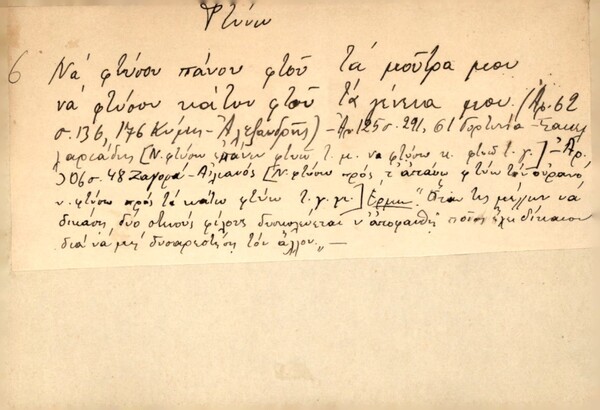 Φτύνω
6 Νά φτύσου πάνου φτοῦ τά μοῦτρα μου
νά φτύσου κάτου φτοῦ τά γένεια μου (Ἀρ. 62
σ. 136, 176 Κύμη - Ἀλεξανδρῆς) - Ἀρ 125 σ. 291, 61 Γορτυνία - Σακελ
λαριάδης [Ν. φτύσω ἐπάνω φτύνω τ. μ. να φτύσω κ. φτύνω τ. γ.] - Ἀρ.
106 σ. 48 Ζαγορά - Αἰλιανός [Ν. φτύσω πρός τ' ἀπάνω φτύνω τόν οὐρανό
ν. φτύσω πρός τά κάτω φτύνω τ. γ. μ.] Ερμ. "Ὅταν τις μέλλη νά
δικάσῃ δύο στενούς φίλους δυσκολεύεται ν' ἀποφανθῇ ποῖος ἔχει δίκαιον
διά νά μή δυσαρεστήσῃ τόν ἄλλον" —